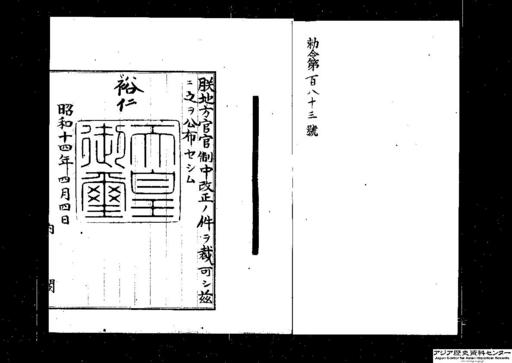 勅令第百八十三號
朕地方官官制中改正ノ件ヲ裁可シ茲
ニ之ヲ公布セシム
裕仁
天皇
御璽
昭和十四年四月四日
内閣
アジア歴史資料センター
Japan Center for Asian Historical Records